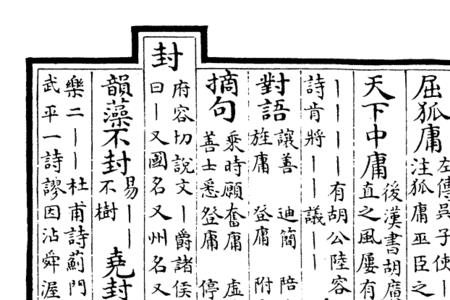 屈狐庸
左傳吳子使丨
注狐庸巫臣之
天下中庸
後漢書胡廣
直之風屢有
丨丨丨丨有胡公陸容
詩肯將丨丨議丨丨
對語
讓善 迪簡 陪
旌庸 登庸 附
摘句
乘時願奮庸 虛
善士悉登庸 停
封
府容切說文丨爵諸侯
曰丨又國名又州名又
韻藻不封
易丨丨
不樹
堯封
樂二丨丨杜甫詩薊門
武平一詩謬因沾舜渥